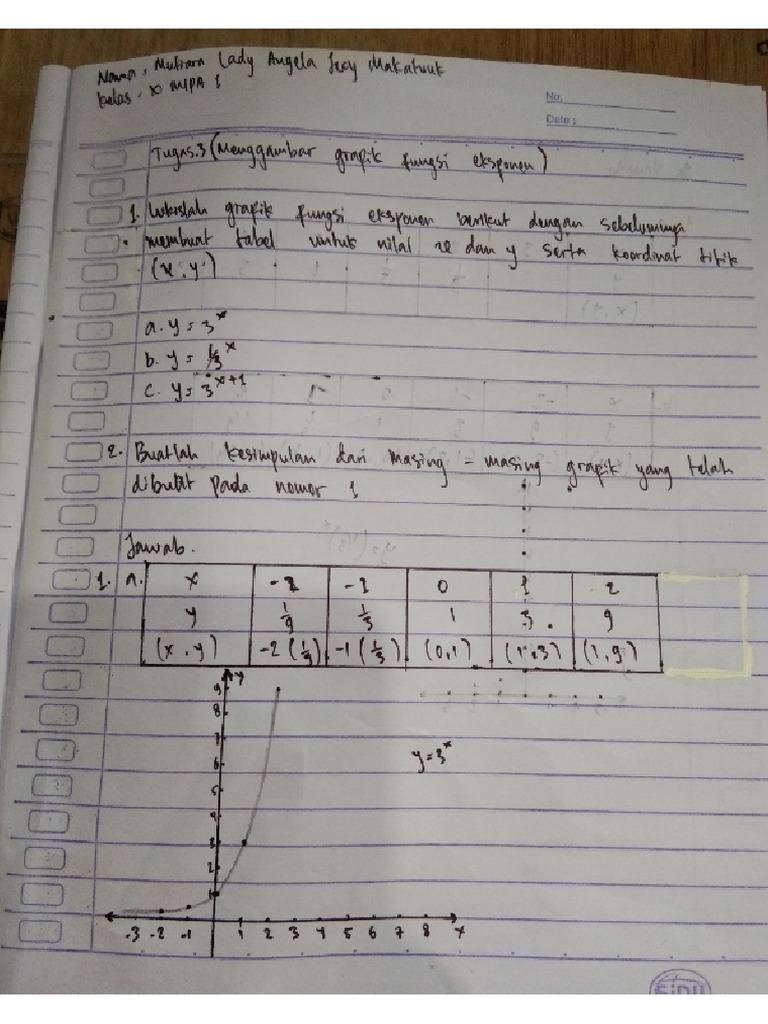 Nama, Mutiara Lady Angela Jexy Makatuuk
kelas, X MIPA 1
No.
Date:
Tugas.3 (Menggambar grafik fungsi eksponen)
1. Lukislah grafik fungsi eksponen berikut dengan sebelumnya
membuat tabel untuk nilai x dan y serta koordinat titik
(x, y)
a. y = 3^x
b. y = 1/3^x
c. y = 3^x+1
2. Buatlah kesimpulan dari masing = masing grafik yang telah
dibuat pada nomor 1
Jawab.
1. a. x -2 -1 0 1 2
y 1/9 1/3 1 3 9
(x, y) -2 (1/9) -1 (1/3) (0,1) (1,3) (1,9)
y
9
8
7
y = 3^x
6
5
4
3
2
1
-3 -2 -1 1 2 3 4 5 6 7 8 x
SiDU